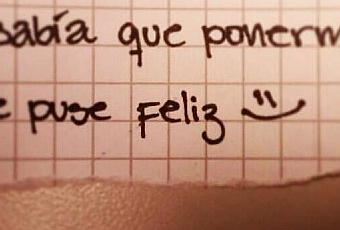 sabía que ponerm
e puse Feliz